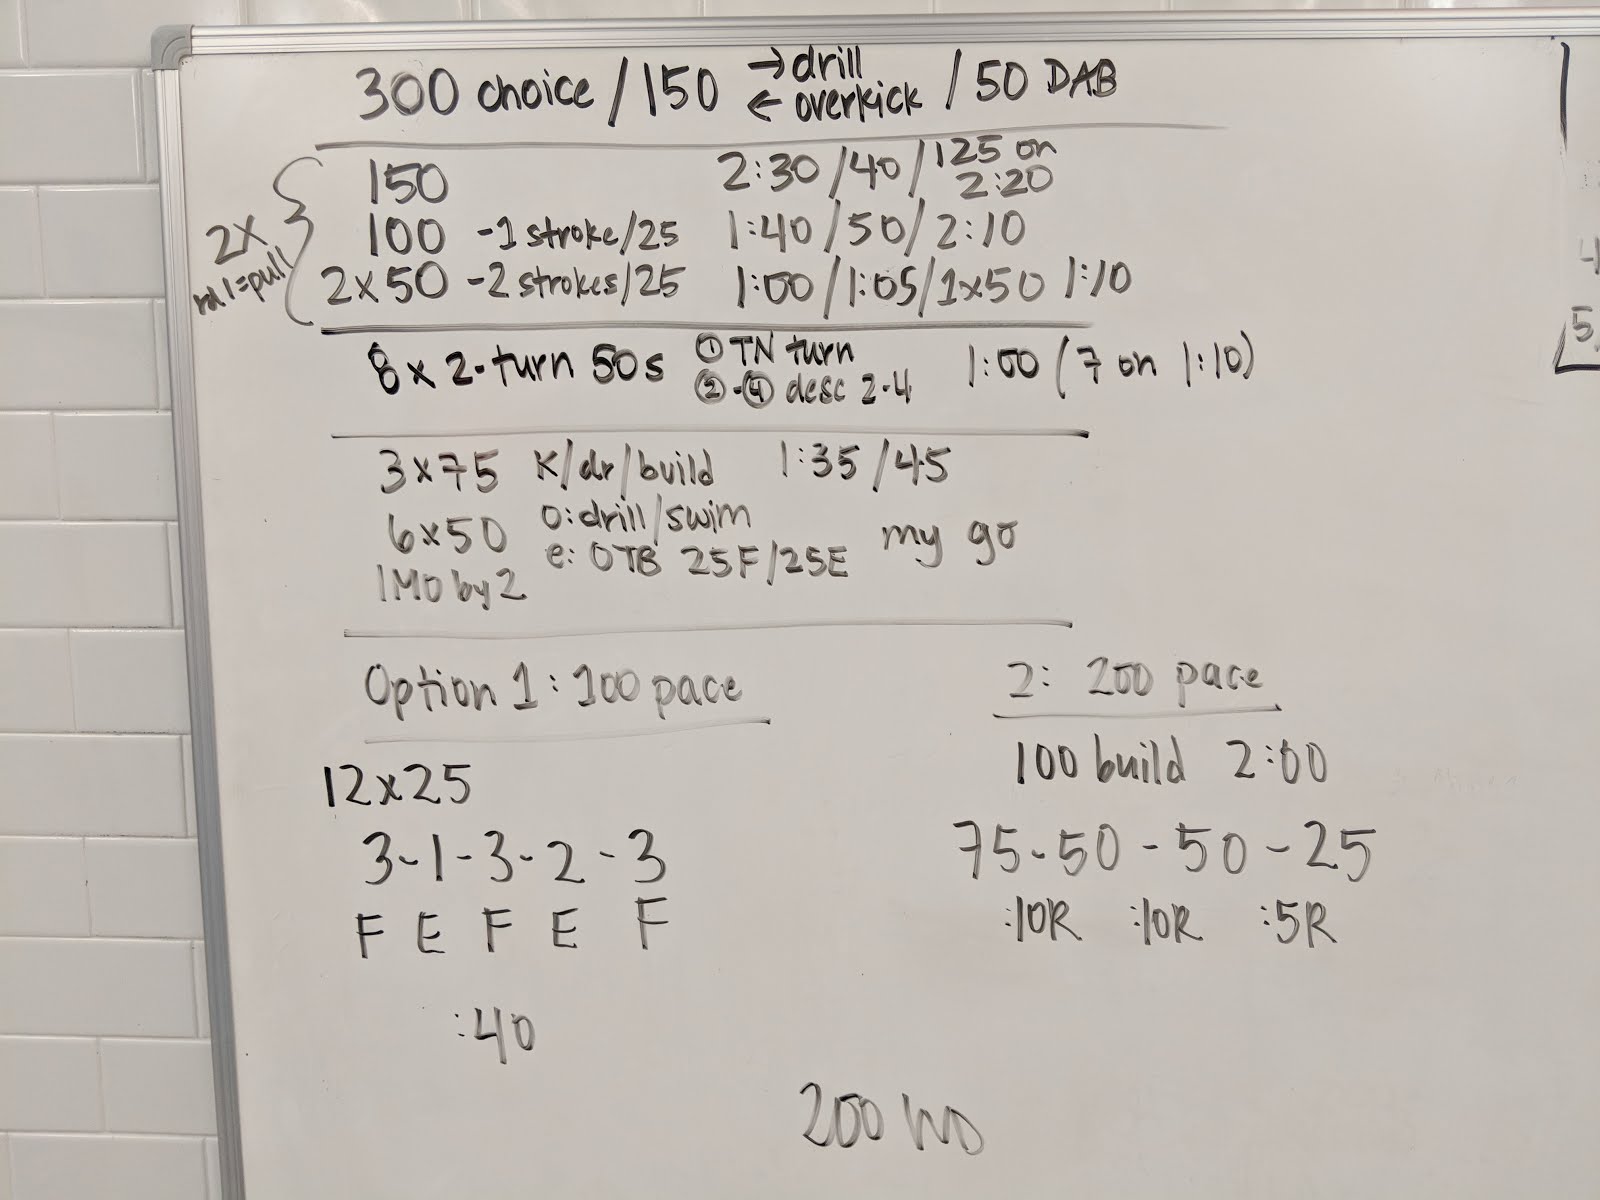 300 choice / 150 → drill / 50 DAB
← overkick
2x
rd 1 = pull
150 2:30 / 40 / 125 on 2:20
100 -1 stroke/25 1:40 / 50 / 2:10
2x50 -2 strokes/25 1:00 / 1:05 / 1x50 1:10
8 x 2-turn 50s ① TN turn 1:00 (7 on 1:10)
②-④ desc 2-4
3x75 K/dr/build 1:35 / 45
6x50 o: drill/swim my go
e: OTB 25F/25E
IMO by 2
Option 1: 100 pace
12x25
3-1-3-2-3
F E F E F
:40
2: 200 pace
100 build 2:00
75-50-50-25
:10R :10R :5R
200 WD
4
5.